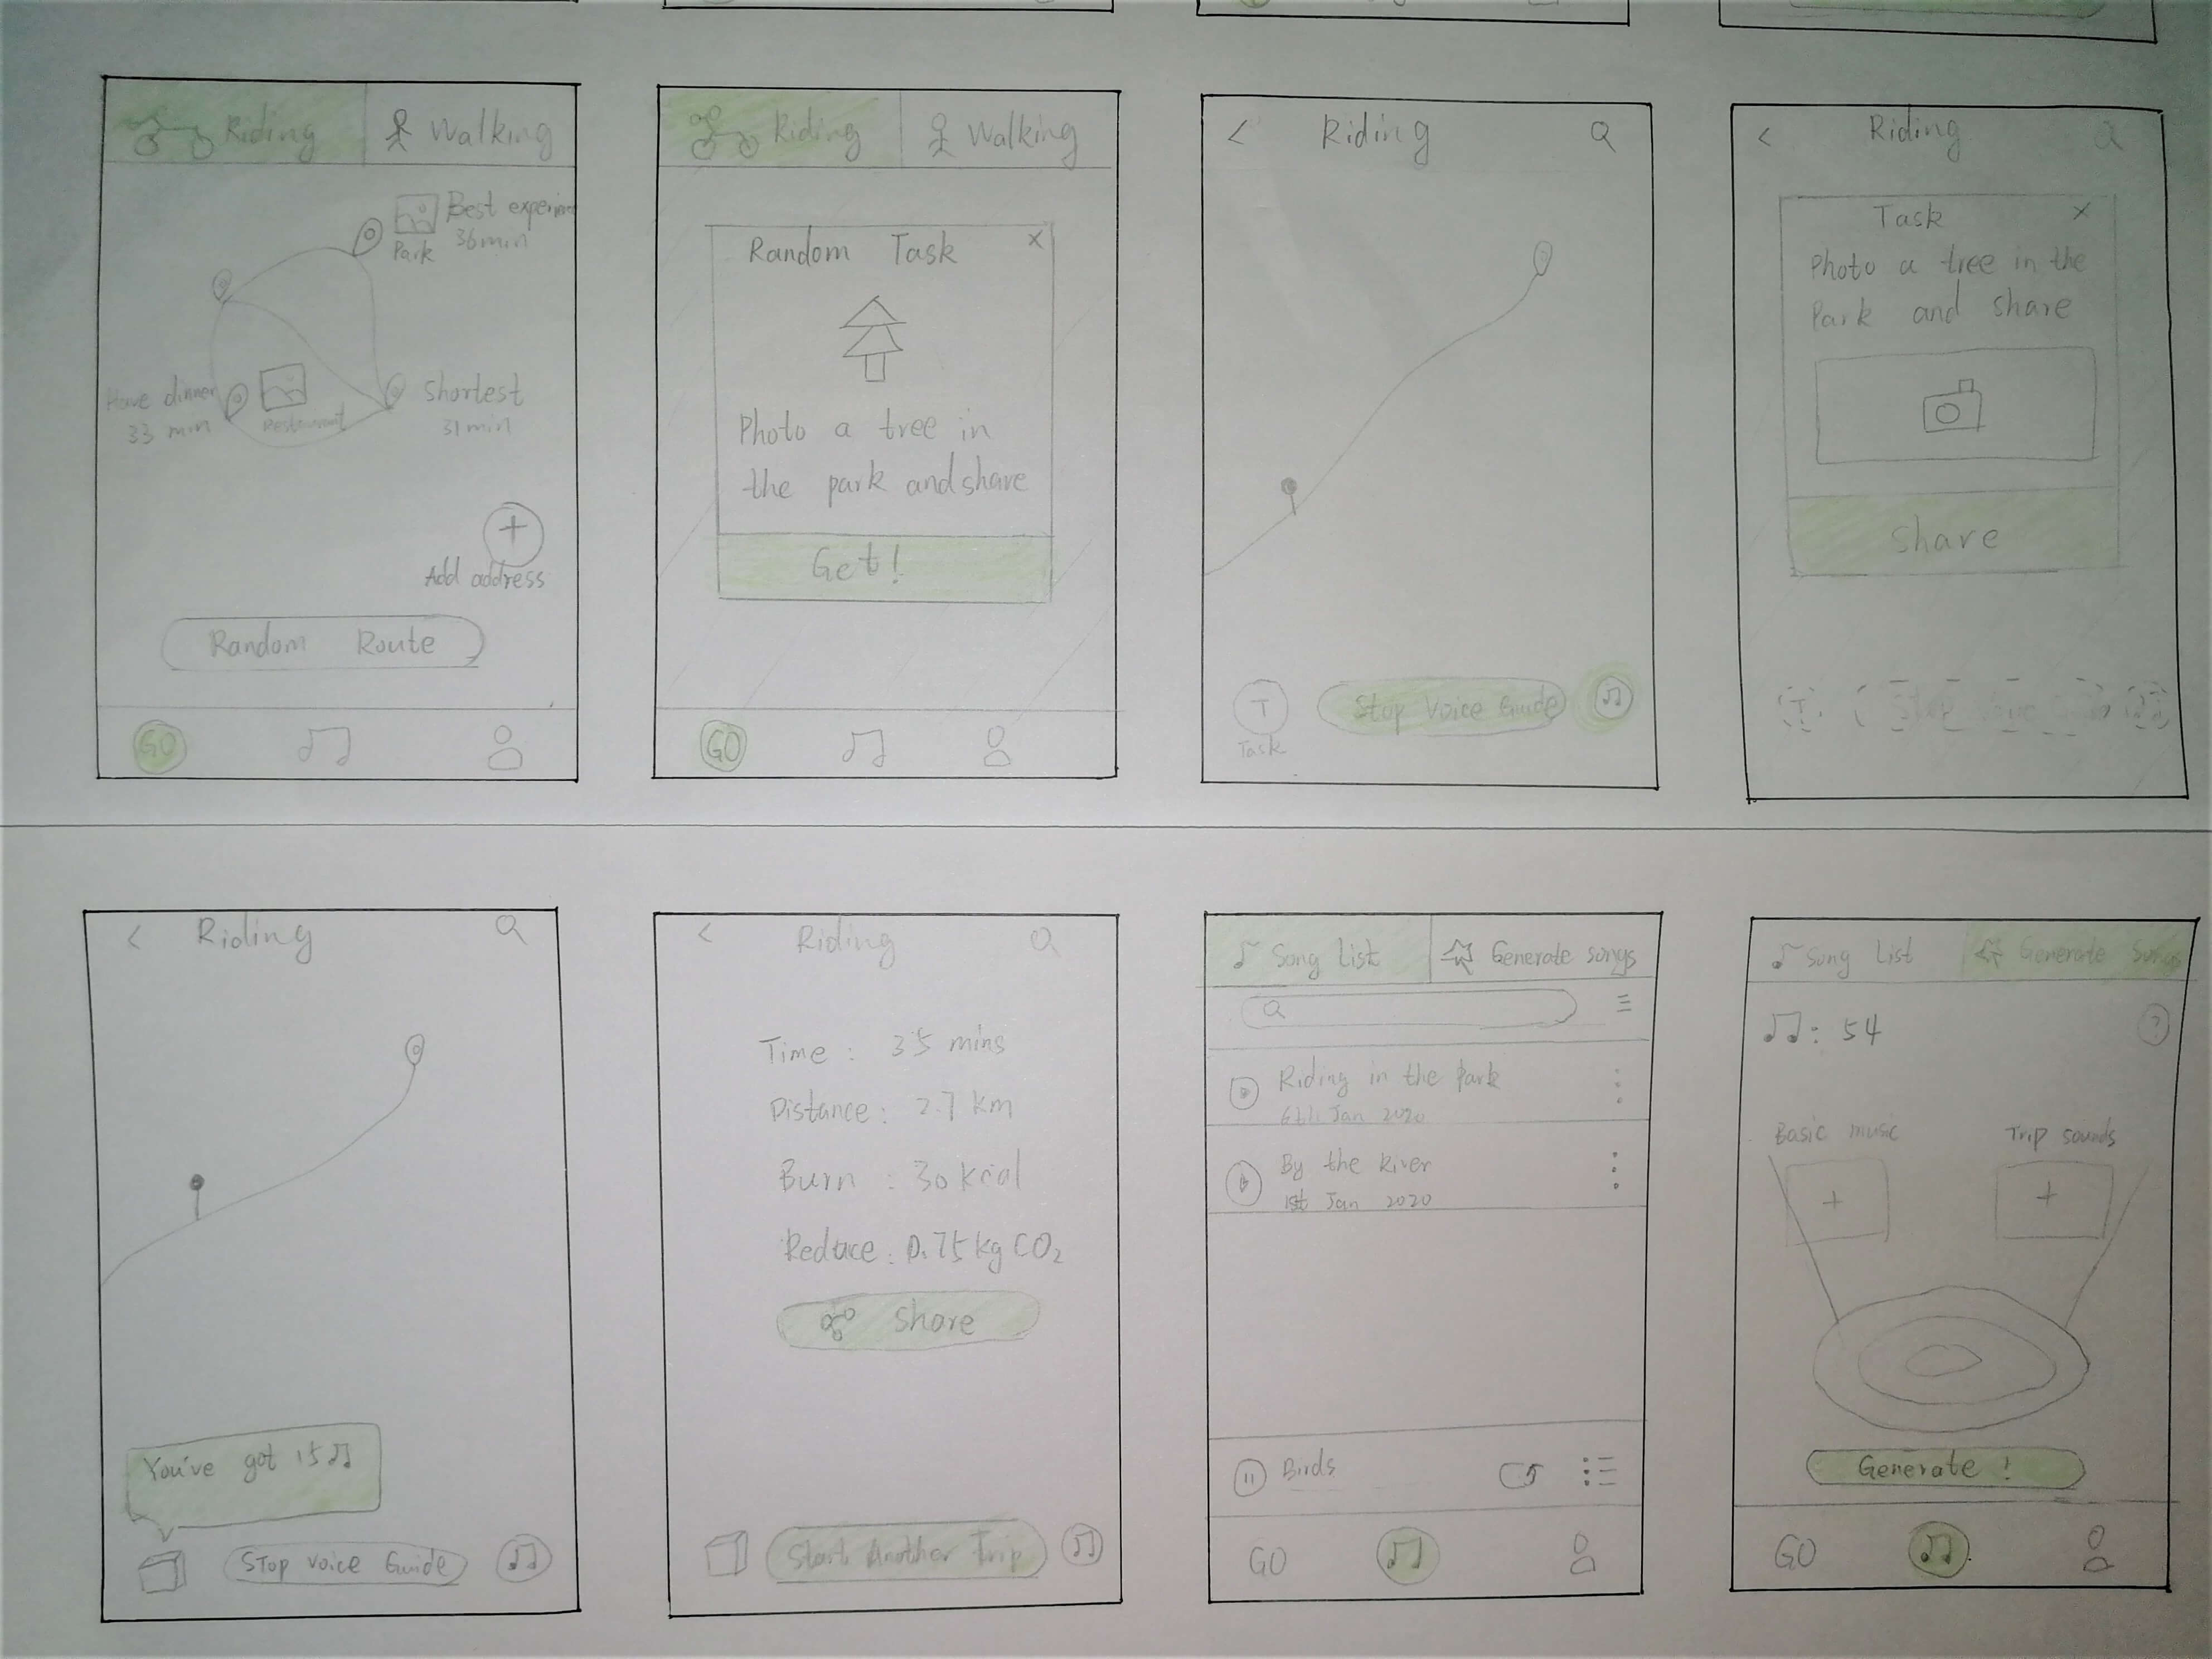 Riding
Walking
Best experien
36min
Park
Have dinner
33 min
Restaurant
Shortest
31min
Add address
Random Route
GO
Riding
Walking
Random Task
Photo a tree in
the park and share
Get!
GO
Riding
T
Task
Stop Voice Guide
Riding
Task
Photo a tree in the
Park and share
Share
T
Riding
You've got 15
Stop Voice Guide
Riding
Time : 35 mins
Distance : 2.7 km
Burn : 30 kcal
Reduce : 0.75kg CO₂
Share
Start Another Trip
Song List
Generate songs
Riding in the Park
6th Jan 2020
By the River
1st Jan 2020
Birds
GO
Song List
Generate Songs
: 54
?
Basic music
Trip sounds
Generate !
GO